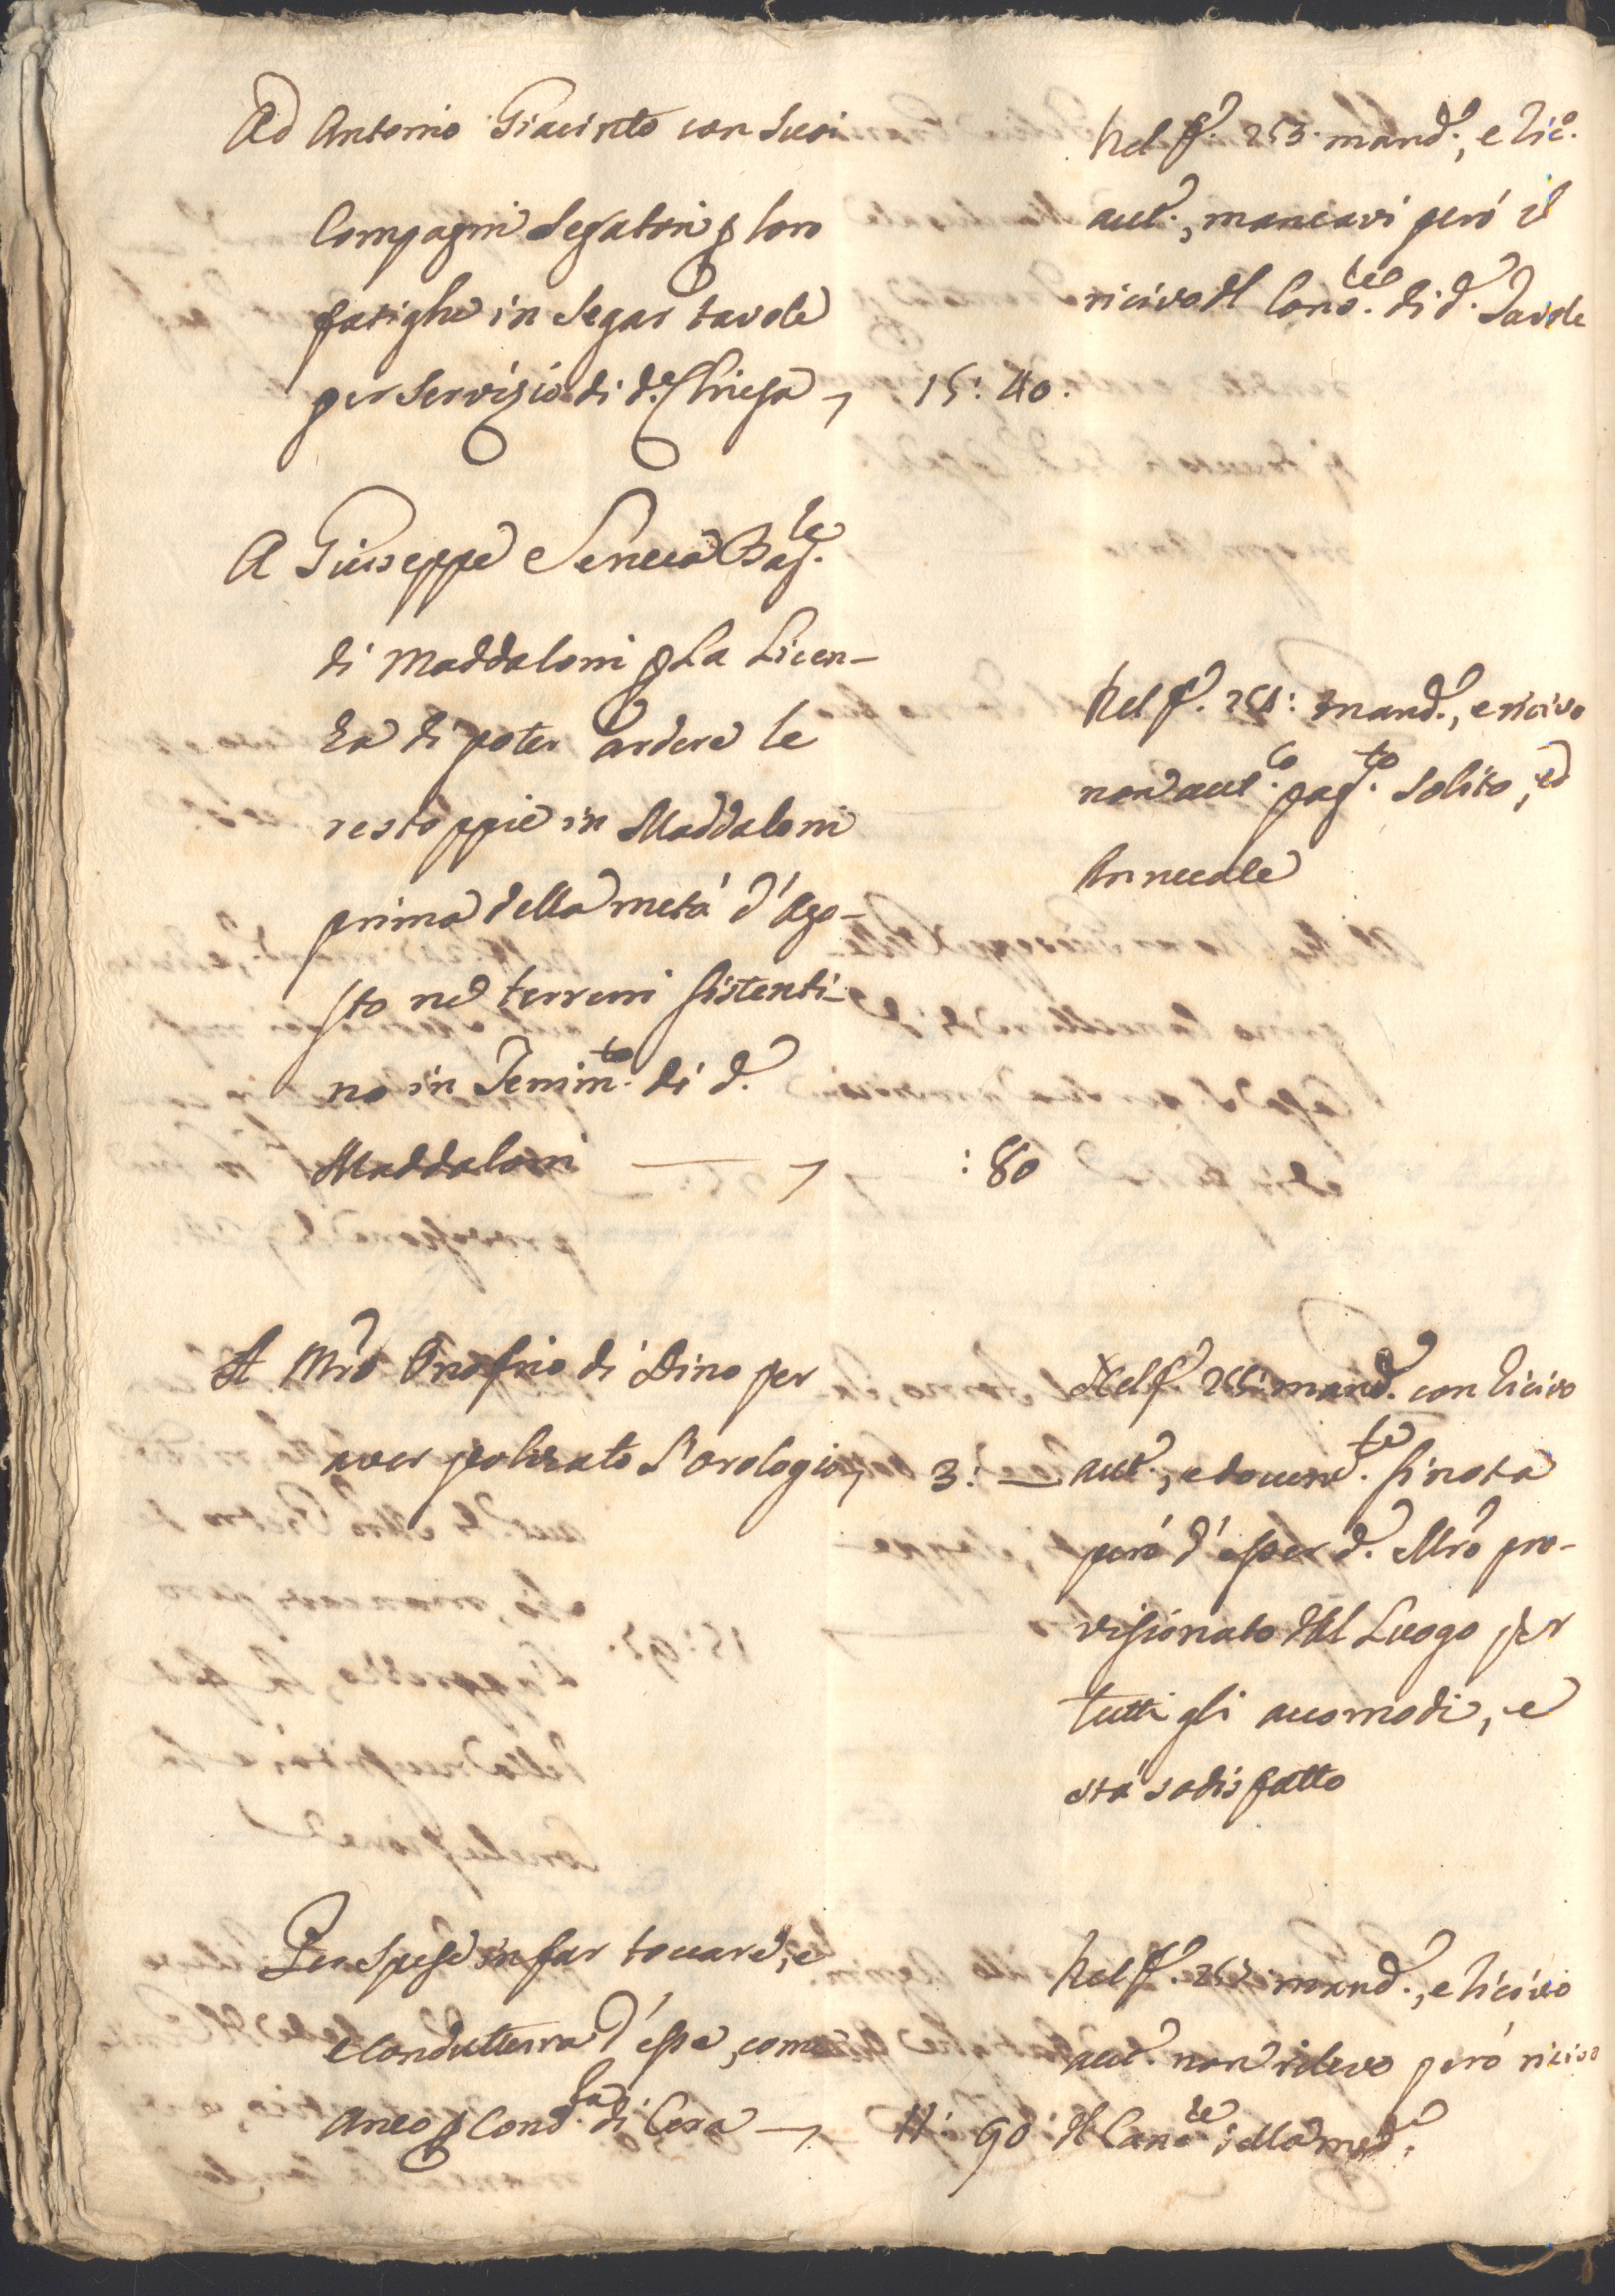 Ad Antonio Giacinto con Suoi
Compagni Segatori p loro
fatighe in Segar tavole
per Servizio di d.ª Chiesa 15: 40.
Nel f. 253. mand., e ric.º
aut., mancavi peró il
ricivo del di d. Tavole
A Giuseppe Seneca Bag.le
di Maddaloni p La Licen-
za di poter ardere le
restoppie in Maddaloni
prima della metá d'Ago-
sto ne terreni sistenti-
no in Tenim.to di d.
Maddaloni : 80
Nel f. 254: mand., e ricivo
non aut.co pag.to Solito, ed
Annuale
A Mrõ Onofrio di Dino per
aver polizzato L'orologio, 3: —
Nel f. mand. con ricivo
aut., e docum.te si nota
peró d' esser d. Mrõ pro-
visionato del Luogo per
tutti gli accomodi, e
stá sodisfatto
Per Spese in far e
e Conduttura d' essa, come
Anco p Cond.ra di Cera 11: 90
Nel f. mand., e ricivo
aut. non rilevo peró ricivo
della med.